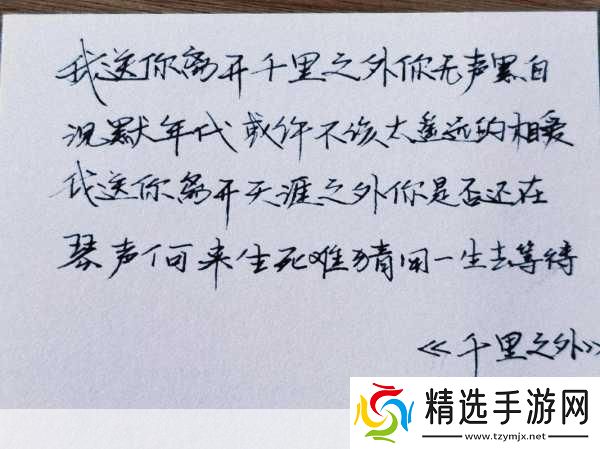 我送你离开千里之外你无声黑白
沉默年代或许不该太遥远的相爱
我送你离开天涯之外你是否还在
琴声何来生死难猜用一生去等待
《千里之外》
精选手游网
www.tzymjx.net.net